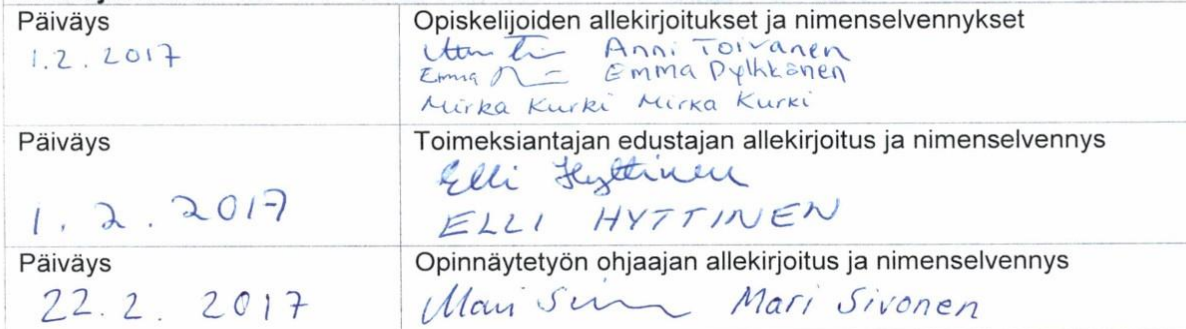 Päiväys
Opiskelijoiden allekirjoitukset ja nimenselvennykset
1.2.2017
Anni Toivanen
Emma Emma Pylkkänen
Mirka Kurki Mirka Kurki
Päiväys
Toimeksiantajan edustajan allekirjoitus ja nimenselvennys
Elli Hyttinen
1.2.2017
ELLI HYTTINEN
Päiväys
Opinnäytetyön ohjaajan allekirjoitus ja nimenselvennys
22.2.2017
Mari Mari Sivonen